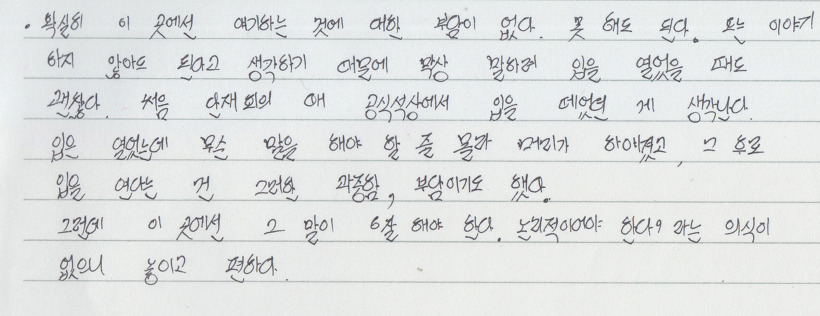 . 확실히 이 곳에선 얘기하는 것에 대한 부담이 없다. 못 해도 된다. 또는 이야기
하지 않아도 된다고 생각하기 때문에 막상 말하려 입을 열었을 때도
괜찮다. 처음 단재회의 때 공식석상에서 입을 떼었던 게 생각난다.
입은 열었는데 무슨 말을 해야 할 줄 몰라 머리가 하얘졌고, 그 후로
입을 연다는 건 그러한 과중함, 부담이기도 했다.
그런데 이 곳에선 그 말이 잘 해야 한다. 논리적이어야 한다? 라는 의식이
없으니 놓이고 편하다.